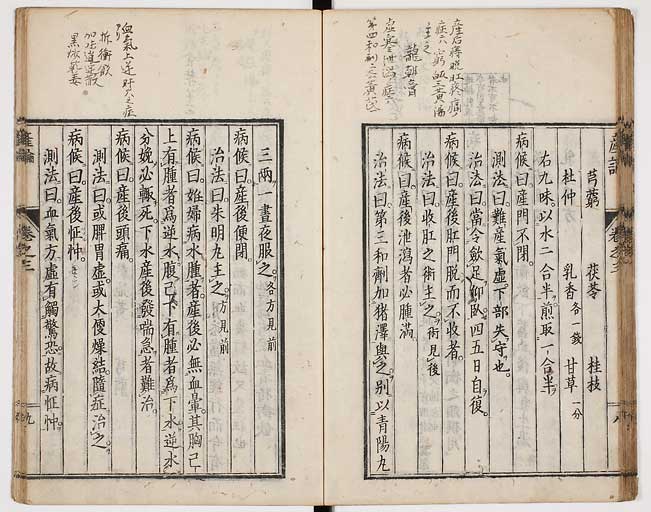 芎藭　茯苓　桂枝
杜仲　乳香各一錢　甘草一分
右九味以水二合半煎取一合半
病候曰產門不閉
測法曰難產氣虛下部失守也
治法曰當令歛足仰臥四五日自復
病候曰產後肛門脫而不收者
治法曰收肛之術主之術見後
病候曰產後泄瀉者必腫滿
治法曰第三和劑加猪澤與之別以青陽九
三兩一晝夜服之各方見前
病候曰產後便閉
治法曰朱明九主之方見前
病候曰姙婦病水腫者產後必無血暈其胸已
上有腫者爲逆水腹已下有腫者爲下水逆水
分娩必輙死下水產後發喘急者難治
病候曰產後頭痛
測法曰或脾胃虛或大便燥結隨症治之
病候曰產後怔忡
測法曰血氣方虛有觸驚恐故病怔忡
產論
卷之三
八
產論
卷之三
九
產后
主之
龍朝音
血氣上逆
折衝飲